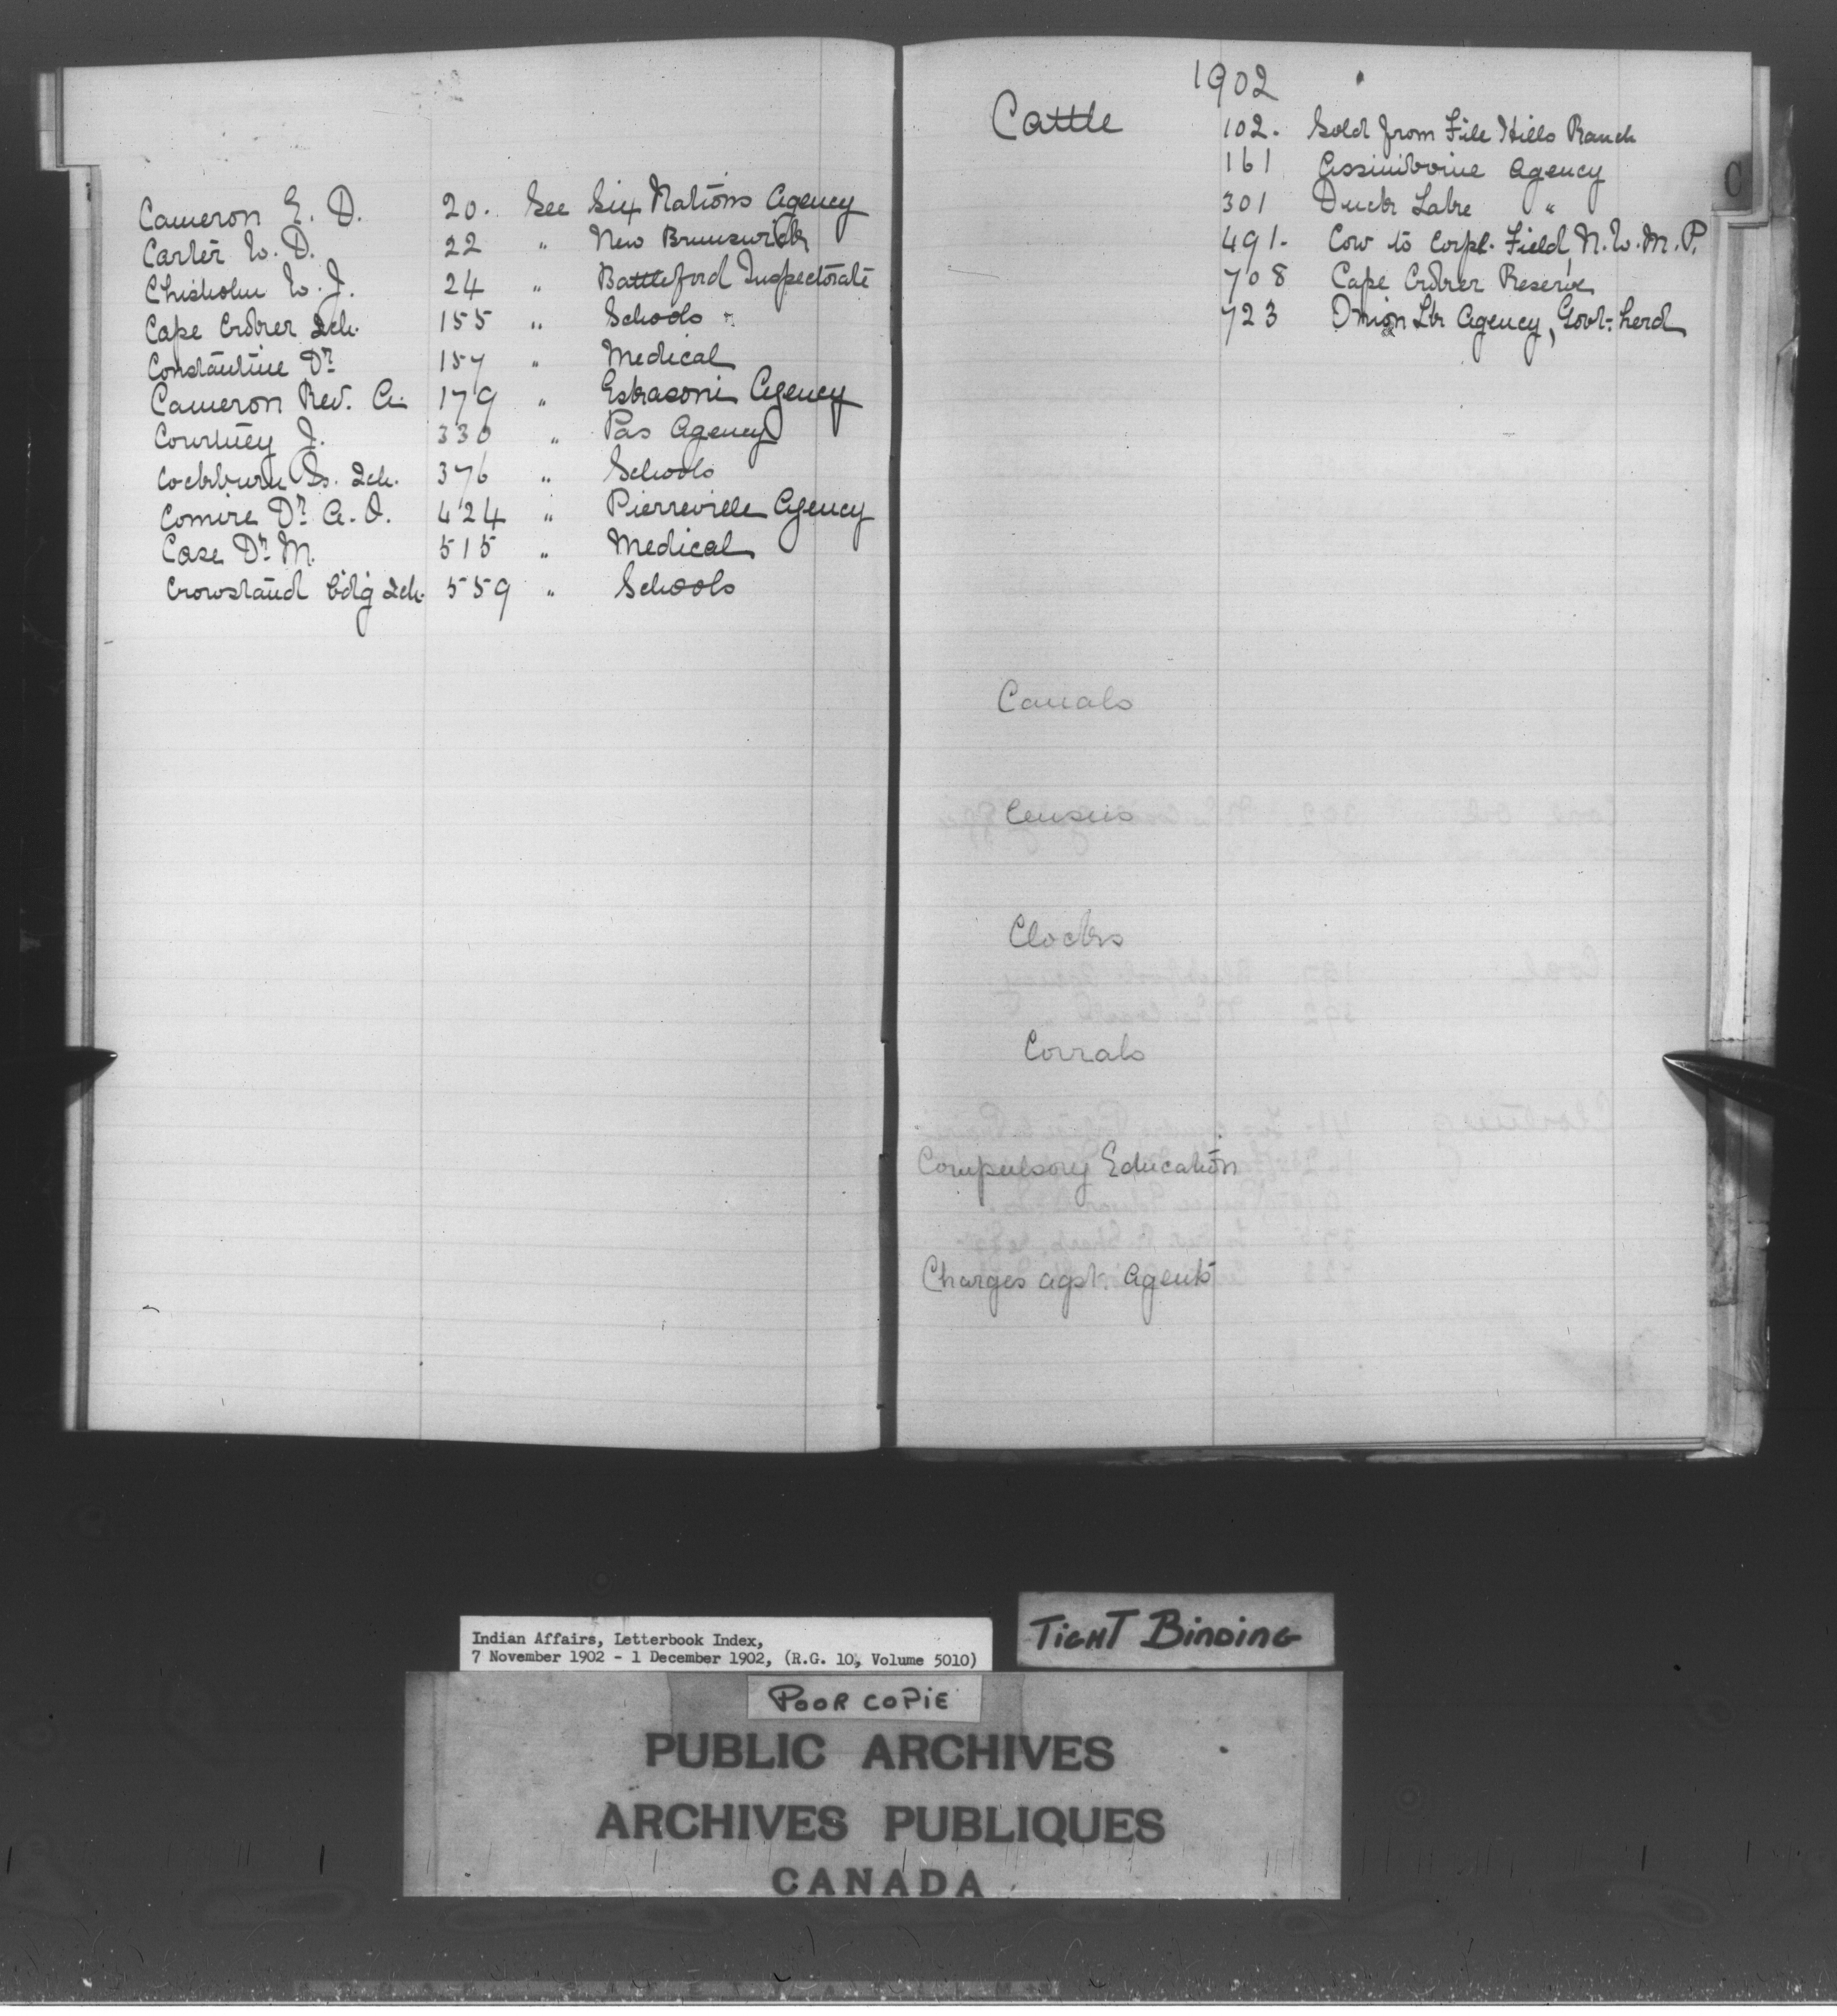 Cameron E. D. 20. See Six Nations Agency
Carter W. D. 22 " New Brunswick
Chisholm W. J. 24 " Battleford Inspectorate
Cape Croker Sch. 155 " Schools
Constantine Dr 157 " Medical
Cameron Rev. A. 179 " Eskasoni Agency
Courtney J. 330 " Pas Agency
Cockburn Is. Sch. 376 " Schools
Comire Dr A. O. 424 " Pierreville Agency
Case Dr M. 515 " Medical
Crowstand Bdg Sch. 559 " Schools
1902
Cattle 102. Sold from File Hills Ranch
161 Assiniboine Agency
301 Duck Lake "
491. Cow to Corpl. Field, N. W. M. P.
708 Cape Croker Reserve
723 Onion Lk Agency, Govt. herd
C
Canals
Census
Clocks
Corrals
Compulsory Education
Charges agst. Agents
Indian Affairs, Letterbook Index,
7 November 1902 - 1 December 1902, (R.G. 10, Volume 5010)
TIGHT BINDING
POOR COPIE
PUBLIC ARCHIVES
ARCHIVES PUBLIQUES
CANADA